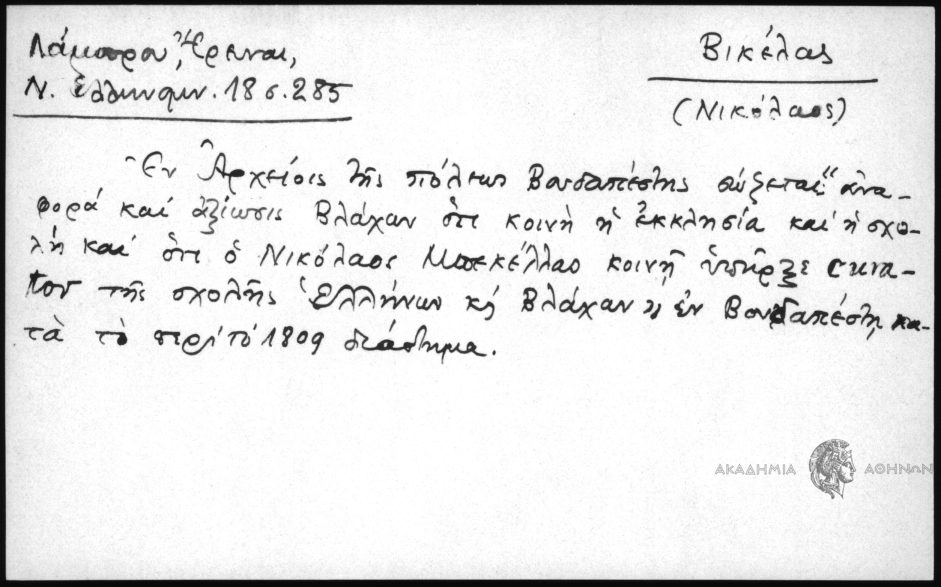 Λάμπρου, Ἔρευναι,
Ν. Ἑλληνομν. 18 σ. 285
Βικέλας
(Νικόλαος)
Ἐν Ἀρχείοις τῆς πόλεως Βουδαπέστης σώζεται: "ἀνα-
φορά καί ἀξίωσις Βλάχων ὅτι κοινὴ ἡ ἐκκλησία καί ἡ σχο-
λή καί ὅτι ὁ Νικόλαος Μπεκέλλας κοινῇ ὑπῆρξε cura-
tor τῆς σχολῆς Ἑλλήνων κ Βλάχων" ἐν Βουδαπέστῃ κα-
τὰ τὸ περί τό 1809 διάστημα.
ΑΚΑΔΗΜΙΑ ΑΘΗΝΩΝ